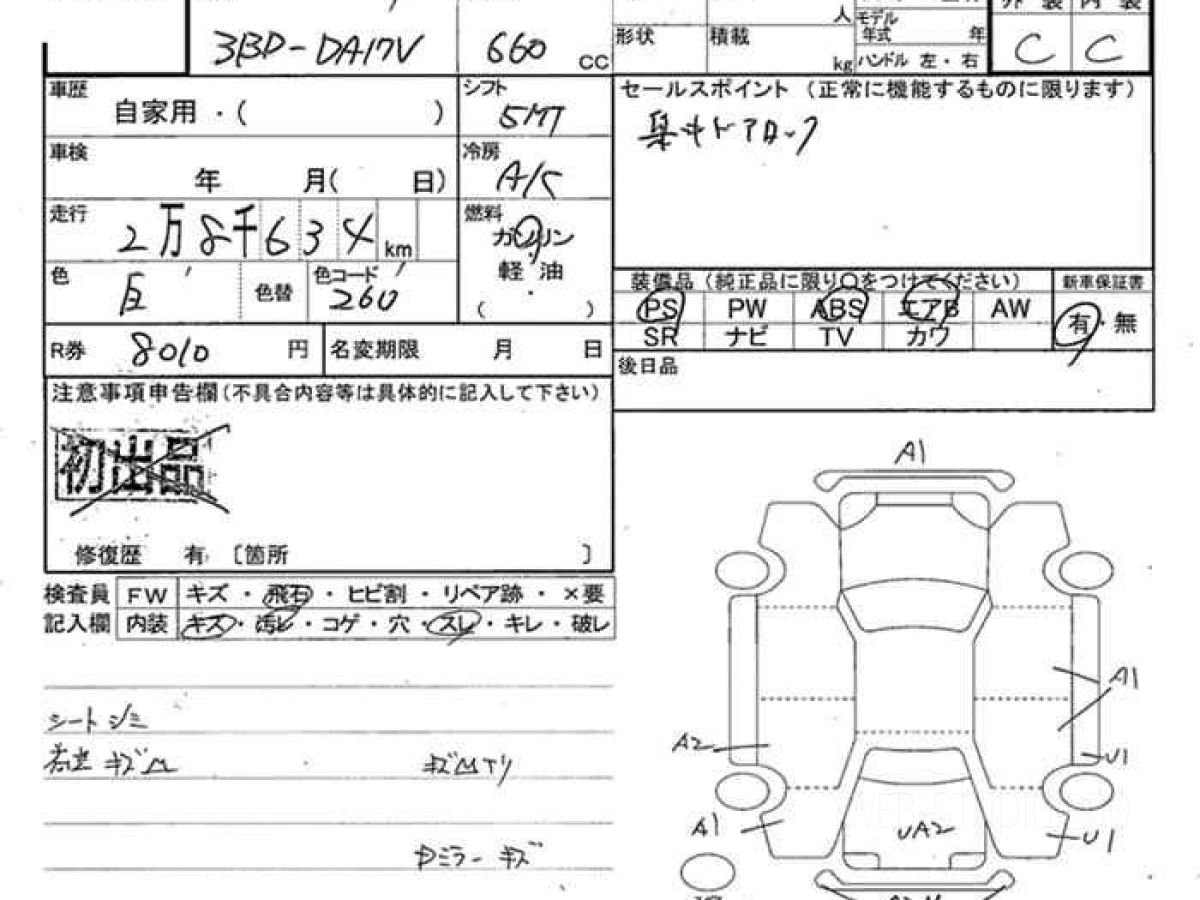 外装 内装
3BD-DA17V 660 cc
形状 積載 人 kg
モデル年式 年
ハンドル 左・右
C C
車歴 自家用・( )
シフト 5MT
セールスポイント (正常に機能するものに限ります)
集中ドアロック
車検 年 月( 日)
冷房 A/C
走行 2万8千634km
燃料 ガソリン
軽・油
( )
色 白 色替 色コード 260
装備品 (純正品に限り○をつけてください) 新車保証書
PS PW ABS エアB AW 有・無
SR ナビ TV カワ
R券 8010 円 名変期限 月 日
後日品
注意事項申告欄(不具合内容等は具体的に記入して下さい)
初出品
修復歴 有 〔箇所 〕
検査員 FW キズ・飛石・ヒビ割・リペア跡・×要
記入欄 内装 キズ・汚レ・コゲ・穴・スレ・キレ・破レ
シート シミ
キズ凹 キズ凹アリ
ミラー キズ
A1
A1
A2
U1
A1
UA2
U1